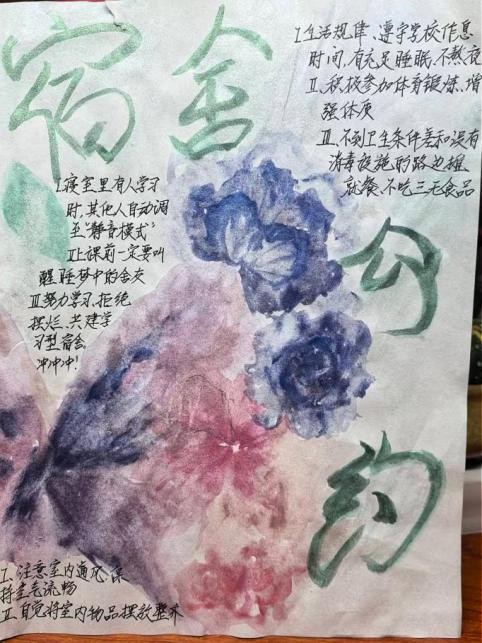 宿舍公约
I.生活规律、遵守学校作息
时间,有充足睡眠,不熬夜
II、积极参加体育锻炼、增
强体质
III、不到卫生条件差和没有
消毒设施的路边摊
就餐、不吃三无食品
I.寝室里有人学习
时,其他人自动调
至“静音模式”
II上课前一定要叫
醒睡梦中的舍友
III努力学习,拒绝
摆烂、共建学
习型宿舍
冲冲冲!
I、注意室内通风,保
持空气流畅
II、自觉将室内物品摆放整齐